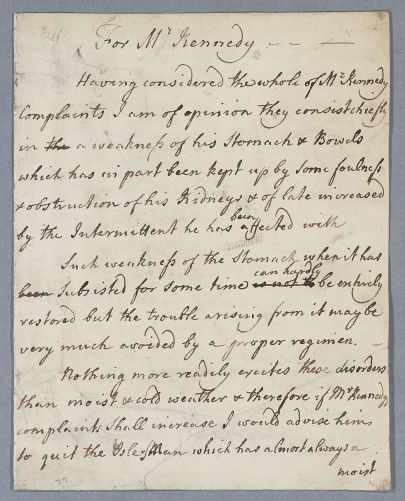 For Mr Kennedy — — —
Having considered the whole of Mr Kennedy
Complaints I am of opinion they consist chiefly
in the a weakness of his Stomach & Bowels
which has in part been kept up by some foulness
& obstruction of his Kidneys & of late increased
by the Intermittent he has been affected with
Such weakness of the Stomach when it has
been Subsisted for some time is not to can hardly be entirely
restored but the trouble arising from it may be
very much avoided by a proper regimen. —
Nothing more readily excites these disorders
than moist & cold weather & therefore if Mr Kennedy
complaints Shall increase I would advise him
to quit the Isle of Man which has almost always a
moist